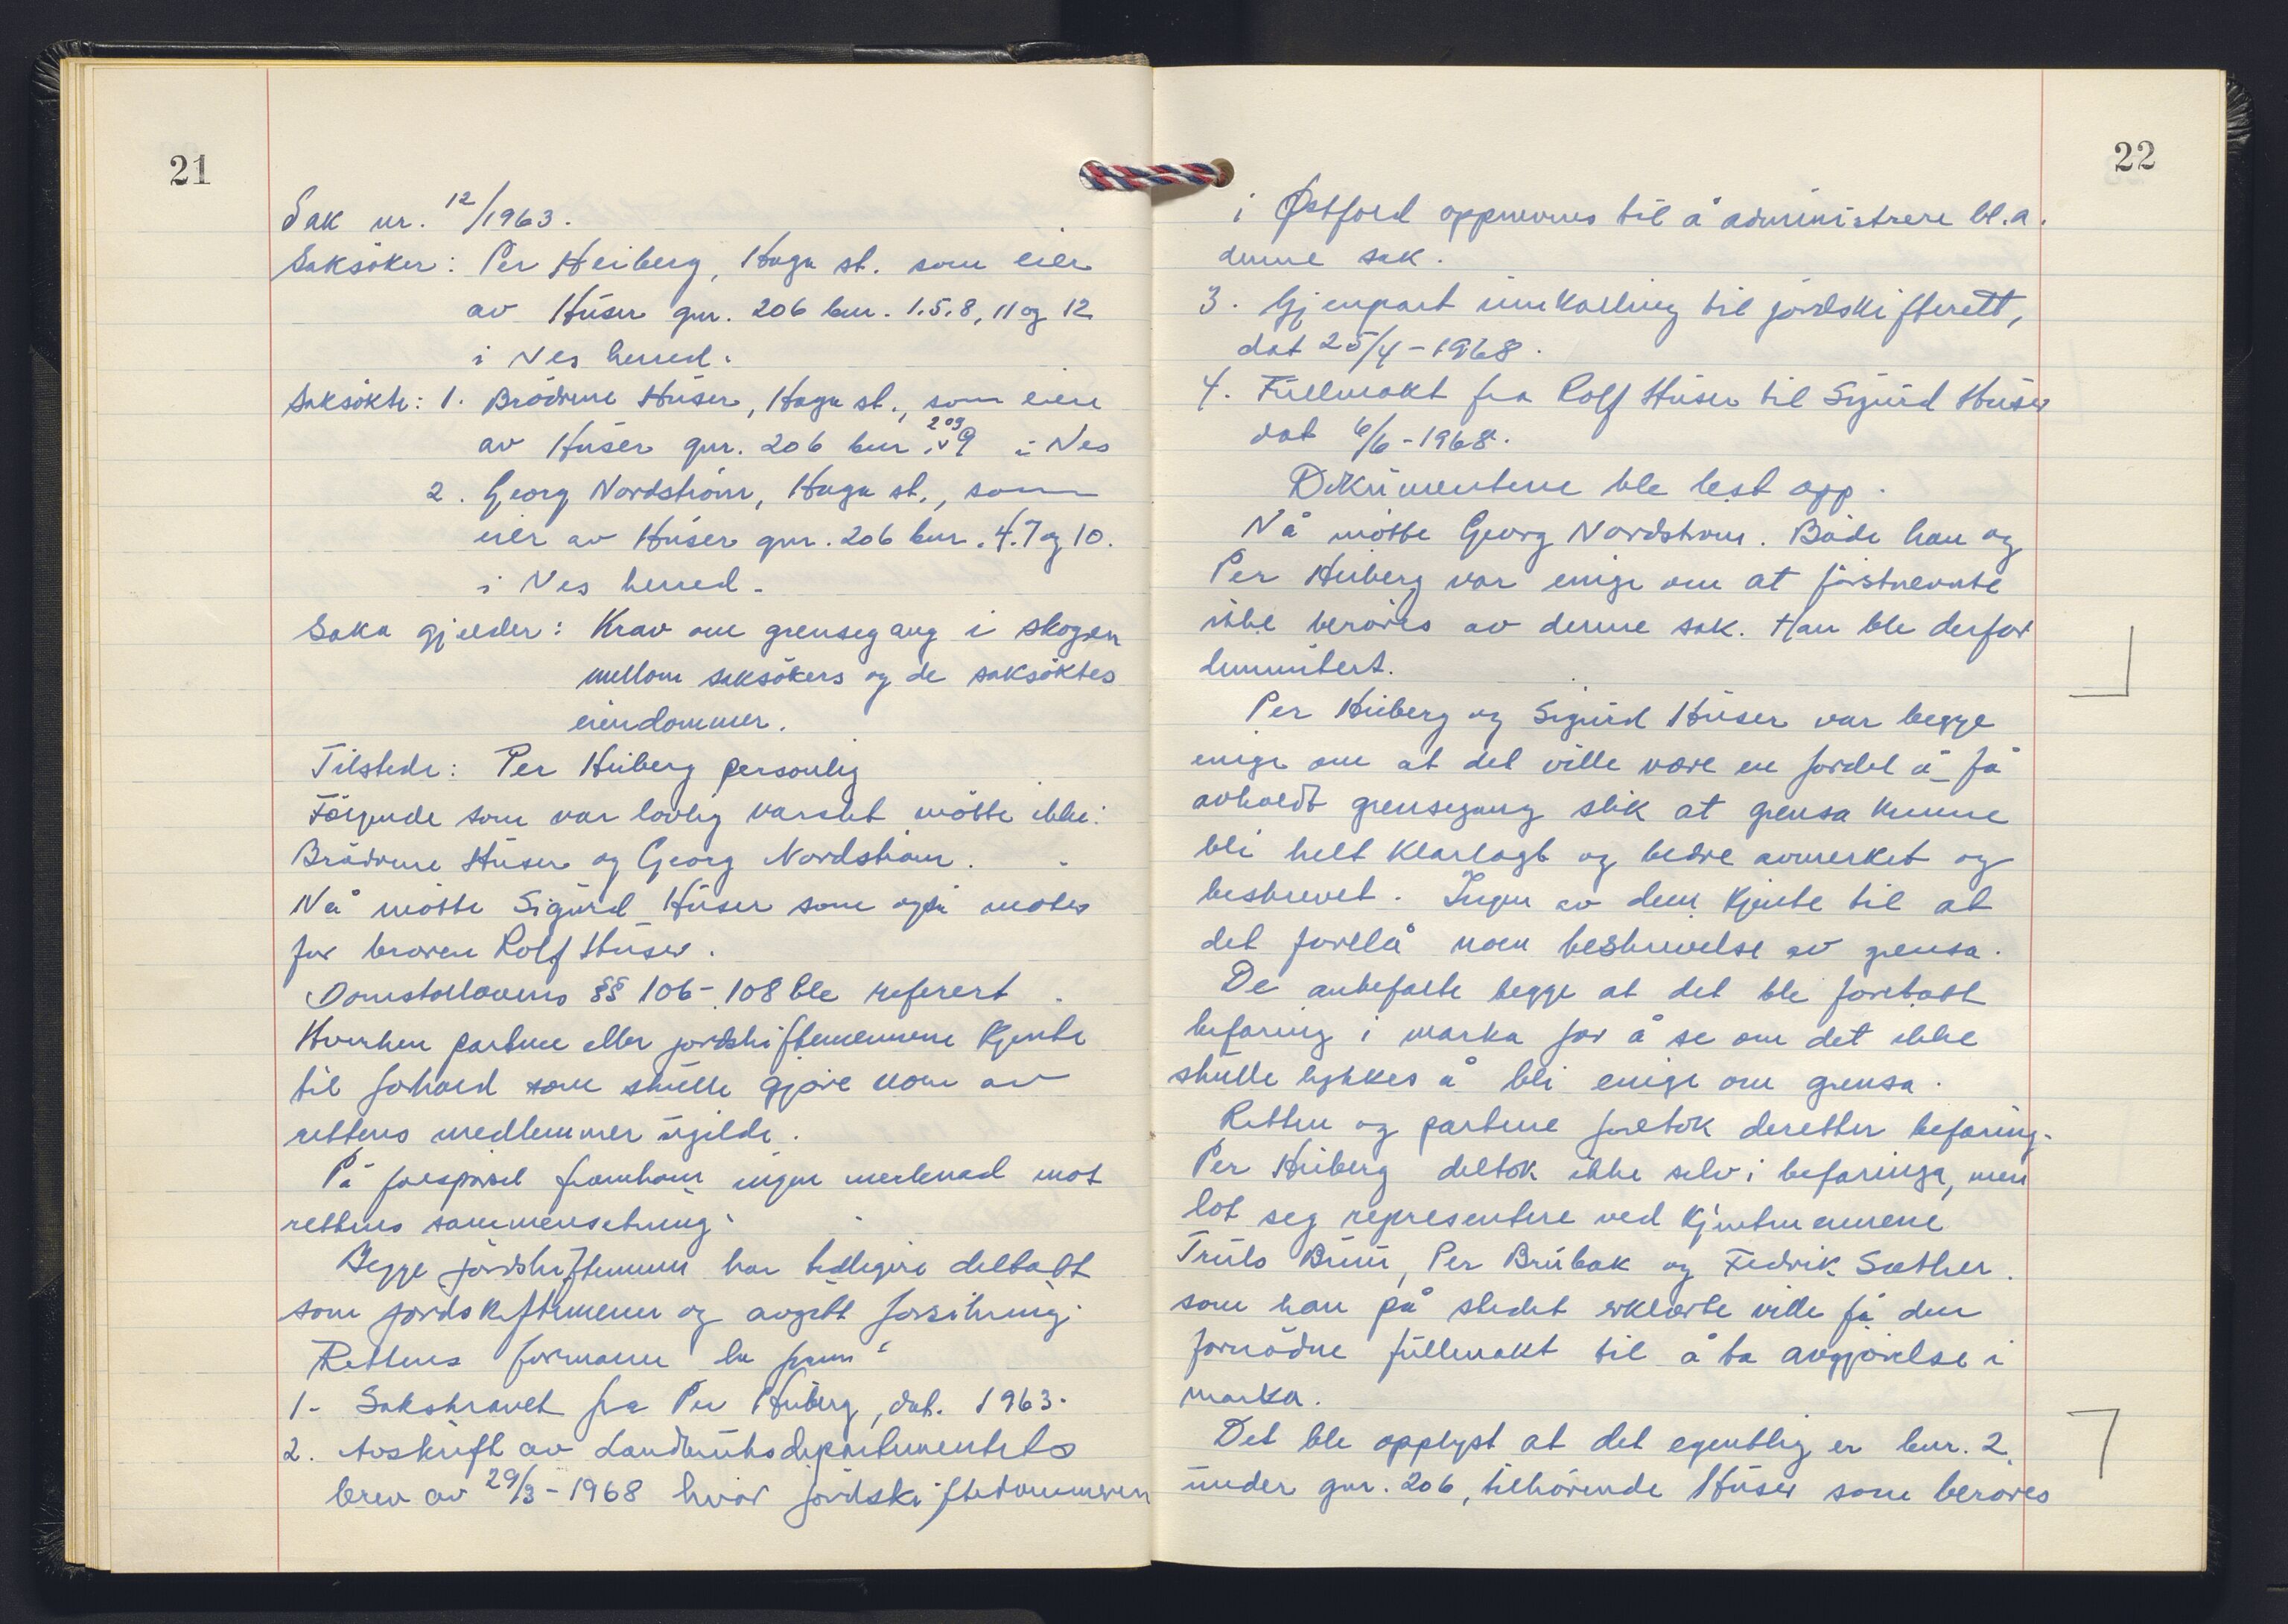 21
Sak nr. 12/1963.
Saksöker: Per Heiberg, Haga st. som eier
av Huser gnr. 206 bnr. 1.5.8, 11 og 12
i Nes herred.
Saksökte: 1. Brödrene Huser, Haga st., som eiere
av Huser gnr. 206 bnr. 2 og 9 i Nes
2. Georg Nordström, Haga st., som
eier av Huser gnr. 206 bnr. 4.7 og 10.
i Nes herred.
Saka gjelder: Krav om grensegang i skogen
mellom saksökers og de saksöktes
eiendommer.
Tilstede: Per Heiberg personlig
Fölgende som var lovlig varslet mötte ikke:
Brödrene Huser og Georg Nordström.
Nå mötte Sigurd Huser som også møter
for broren Rolf Huser.
Domstollovens §§ 106-108 ble referert.
Hverken partene eller jordskiftemennene kjente
til forhold som skulle gjöre noen av
rettens medlemmer ugilde.
På forespörsel framkom ingen merknad mot
rettens sammensetning.
Begge jordskiftemenn har tidligere deltatt
som jordskiftemenn og avgitt forsikring.
Rettens formann la fram:
1. Sakskravet fra Per Heiberg, dat. 1963.
2. Avskrift av Landbruksdepartementets
brev av 29/3-1968 hvor jordskiftedommeren
22
i Østfold oppnevnes til å administrere bl.a.
denne sak.
3. Gjenpart innkalling til jordskifterett,
dat 25/4-1968.
4. Fullmakt fra Rolf Huser til Sigurd Huser
dat 6/6-1968.
Dokumentene ble lest opp.
Nå mötte Georg Nordström. Både han og
Per Heiberg var enige om at förstnevnte
ikke beröres av denne sak. Han ble derfor
dimmitert.
Per Heiberg og Sigurd Huser var begge
enige om at det ville være en fordel å få
avholdt grensegang slik at grensa kunne
bli helt klarlagt og bedre avmerket og
beskrevet. Ingen av dem kjente til at
det forelå noen beskrivelse av grensa.
De anbefalte begge at det ble foretatt
befaring i marka for å se om det ikke
skulle lykkes å bli enige om grensa.
Retten og partene foretok deretter befaring.
Per Heiberg deltok ikke selv i befaringa, men
lot seg representere ved kjentmennene
Truls Bruu, Per Brubak og Fedrik Sæther.
som han på stedet erklærte ville få den
fornödne fullmakt til å ta avgjörelse i
marka.
Det ble opplyst at det egentlig er bnr. 2.
under gnr. 206, tilhörende Huser som beröres